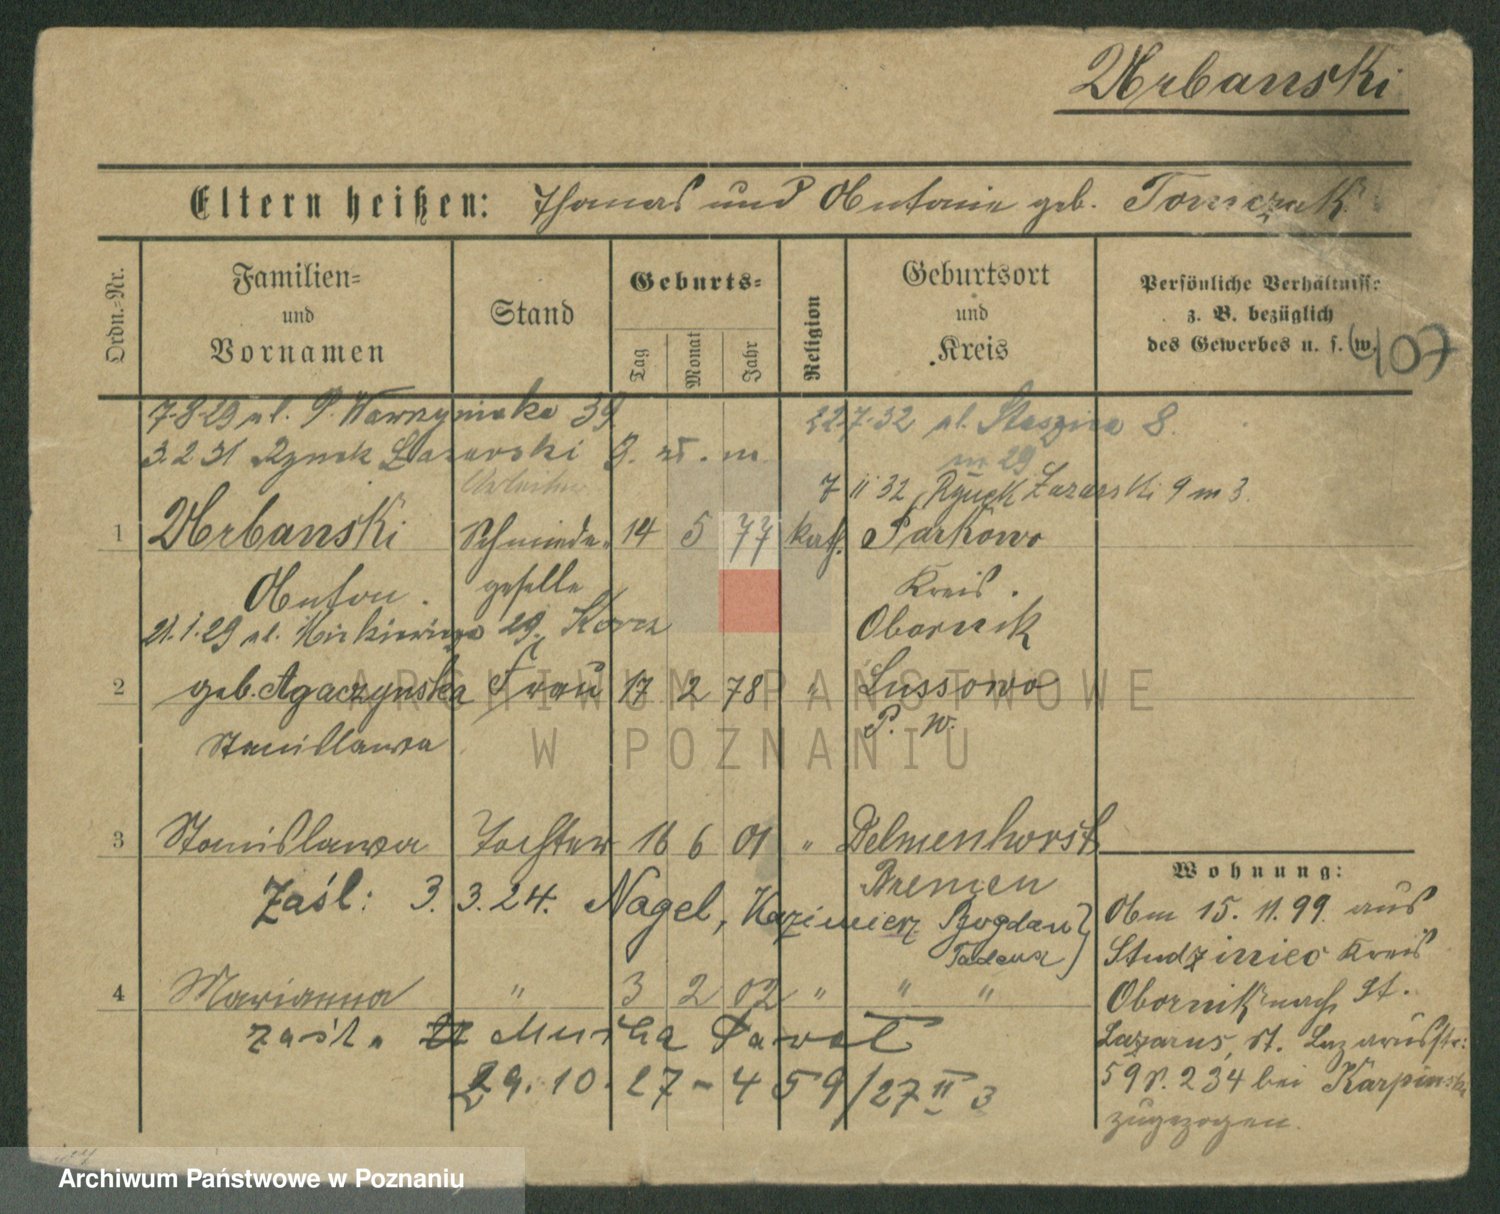 Urbanski
Eltern heißen: Thomas und Antonie geb. Tomczak
Ordn.-Nr.
Familien-
und
Vornamen
Stand
Geburts-
Tag
Monat
Jahr
Religion
Geburtsort
und
Kreis
Persönliche Verhältnisse
z. B. bezüglich
des Gewerbes u. s. w.
107
7.8.29 ul. P. Wawrzyniaka 39
22.7.32 pl. Staszica 8.
m 29
3.2.31 Rynek Łazarski 9.
7 11 32 Rynek Łazarski 9 m 3.
Arbeiter
1 Urbanski Schmiede- 14 5 77 kath. Parkowo
Anton. geselle Kreis.
21.1.29 ul. Mickiewicza 29. Obornik
2 geb. Agaczynska Frau 17 2 78 " Lussowo
Stanislawa P. W.
3 Stanislawa Tochter 16 6 01 " Delmenhorst
Bremen
zaśl: 3.3.24. Nagel, Kazimierz Bogdan
Tadeusz
4 Marianna " 3 2 02 " " "
zaśl. Pawel
29.10.27 - 459/27 II 3
Wohnung:
Am 15.11.99. aus
Studziniec Kreis
Obornik nach St.
Lazarus, St. Lazarusstr:
59 P. 234 bei Karpinski
zugezogen.
ARCHIWUM PAŃSTWOWE
W POZNANIU
Archiwum Państwowe w Poznaniu